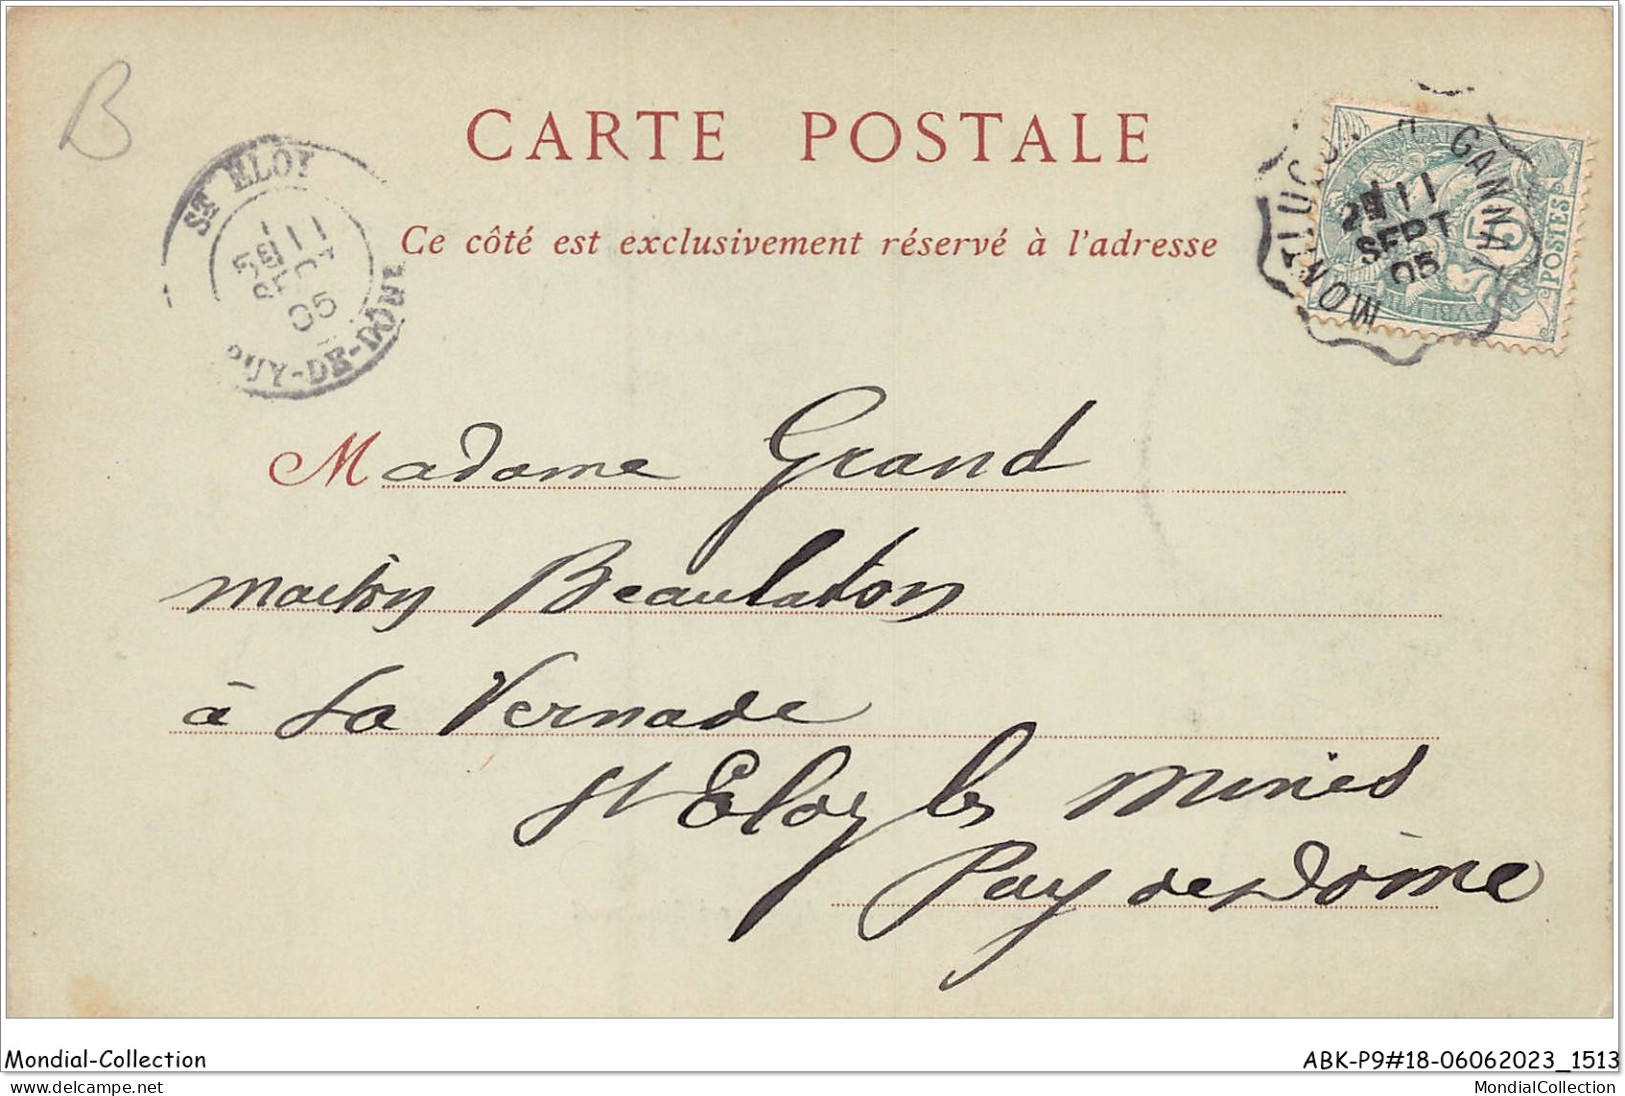 B
CARTE POSTALE
Ce côté est exclusivement réservé à l'adresse
ST ELOY
11
SEPT
05
PUY-DE-DÔME
MONTLUÇON A GANNAT
2E 11
SEPT
05
5
POSTES
Madame Grand
Beaulaton
à La Vernade
St Eloy les Mines
Puy de Dôme
Mondial-Collection
ABK-P9#18-06062023_1513
delcampe.net
MondialCollection